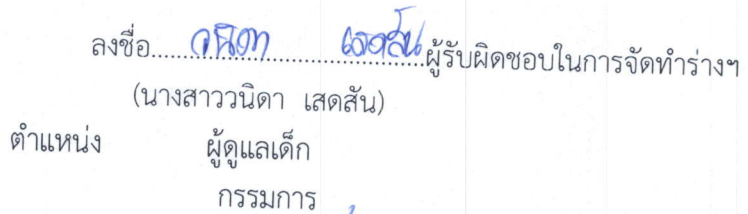 ลงชื่อ......วนิดา เสดสัน......ผู้รับผิดชอบในการจัดทำร่างฯ
(นางสาววนิดา เสดสัน)
ตำแหน่ง ผู้ดูแลเด็ก
กรรมการ